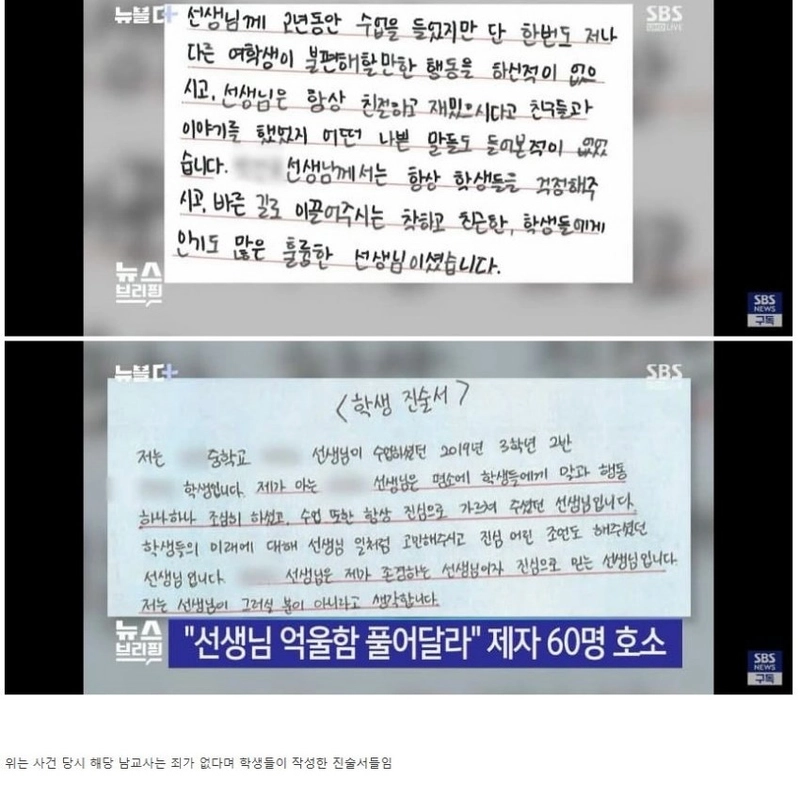 뉴블더+
SBS
선생님께 2년동안 수업을 들었지만 단 한번도 저나
다른 여학생이 불편해할만한 행동을 하신적이 없으
시고, 선생님은 항상 친절하고 재밌으시다고 친구들과
이야기를 했었지 어떤 나쁜 말들도 들어본적이 없었
습니다. 선생님께서는 항상 학생들을 걱정해주
시고, 바른 길로 이끌어주시는 착하고 친근한, 학생들에게
인기도 많은 훌륭한 선생님이셨습니다.
뉴스
브리핑
SBS
NEWS
구독
뉴블더+
SBS
<학생 진술서>
저는 중학교 선생님이 수업하셨던 2019년 3학년 2반
학생입니다. 제가 아는 선생님은 평소에 학생들에게 말과 행동
하나하나 조심히 하셨고, 수업 또한 항상 진심으로 가르쳐 주셨던 선생님입니다.
학생들의 미래에 대해 선생님 일처럼 고민해주시고 진심 어린 조언도 해주셨던
선생님입니다. 선생님은 제가 존경하는 선생님이자 진심으로 믿는 선생님입니다.
저는 선생님이 그러실 분이 아니라고 생각합니다.
뉴스
브리핑
"선생님 억울함 풀어달라" 제자 60명 호소
SBS
NEWS
구독
위는 사건 당시 해당 남교사는 죄가 없다며 학생들이 작성한 진술서들임